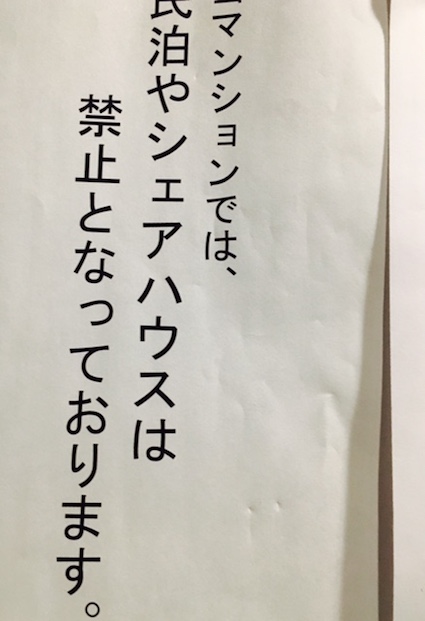 マンションでは、
民泊やシェアハウスは
禁止となっております。